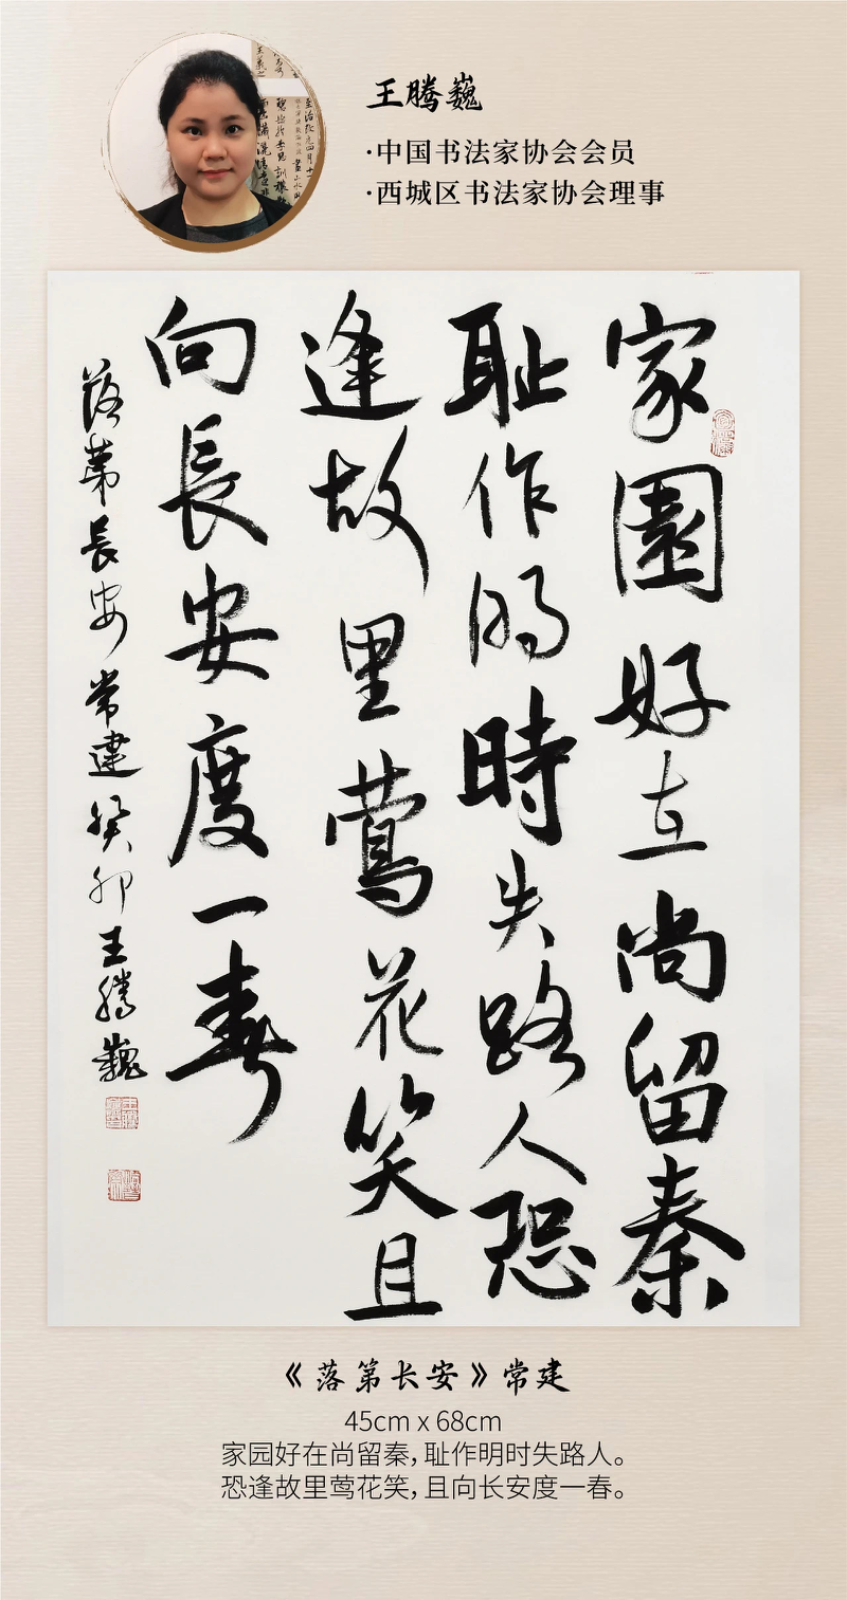 王腾巍
·中国书法家协会会员
·西城区书法家协会理事
家園好在尚留秦
耻作明時失路人恐
逢故里莺花笑且
向長安度一春
落第長安 常建 癸卯王腾巍
《落第长安》常建
45cm x 68cm
家园好在尚留秦，耻作明时失路人。
恐逢故里莺花笑，且向长安度一春。